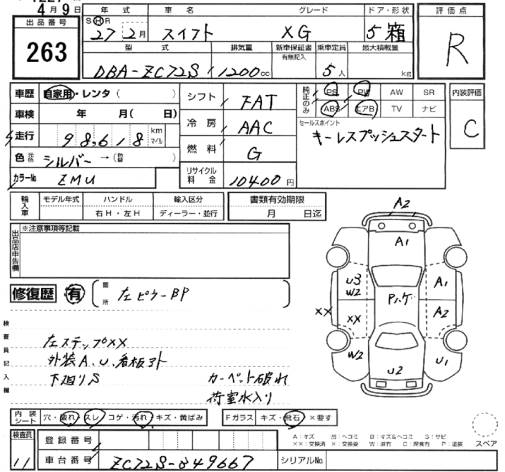 4月9日
出品番号
263
年式
車名
グレード
ドア・形状
評価点
S H R
27年2月 スイフト XG 5箱
R
型式
排気量
新車保証書
有無記入
乗車定員
最大積載量
DBA-ZC72S 1200cc 5人 kg
車歴 自家用・レンタ( )
車検 年 月( 日)
走行 98,618 km マイル
色 シルバー→( )
カラーNo ZMU
シフト FAT
冷房 AAC
燃料 G
リサイクル料金 10400円
純正のみ
PS PW AW SR
ABS エアB TV ナビ
セールスポイント
キーレスプッシュスタート
内装評価
C
輸入車
モデル年式
ハンドル
右H・左H
輸入区分
ディーラー・並行
書類有効期限
月 日迄
出品店申告欄
※注意事項等記載
修復歴 有
箇所
左ピラーBP
検査員記入欄
左ステップXX
外装A、U、看板跡
下廻りS
カーペット破れ
荷室水入り
A2
A1
U3
W2
A1
Pハゲ
XX
XX
A2
W2
U2
U1
内装シート
穴・破れ・スレ・コゲ・汚れ・キズ・黄ばみ
Fガラス キズ・飛石・X要す
スペア
検査員
11
登録番号
車台番号 ZC72S-849667
シリアルNo.